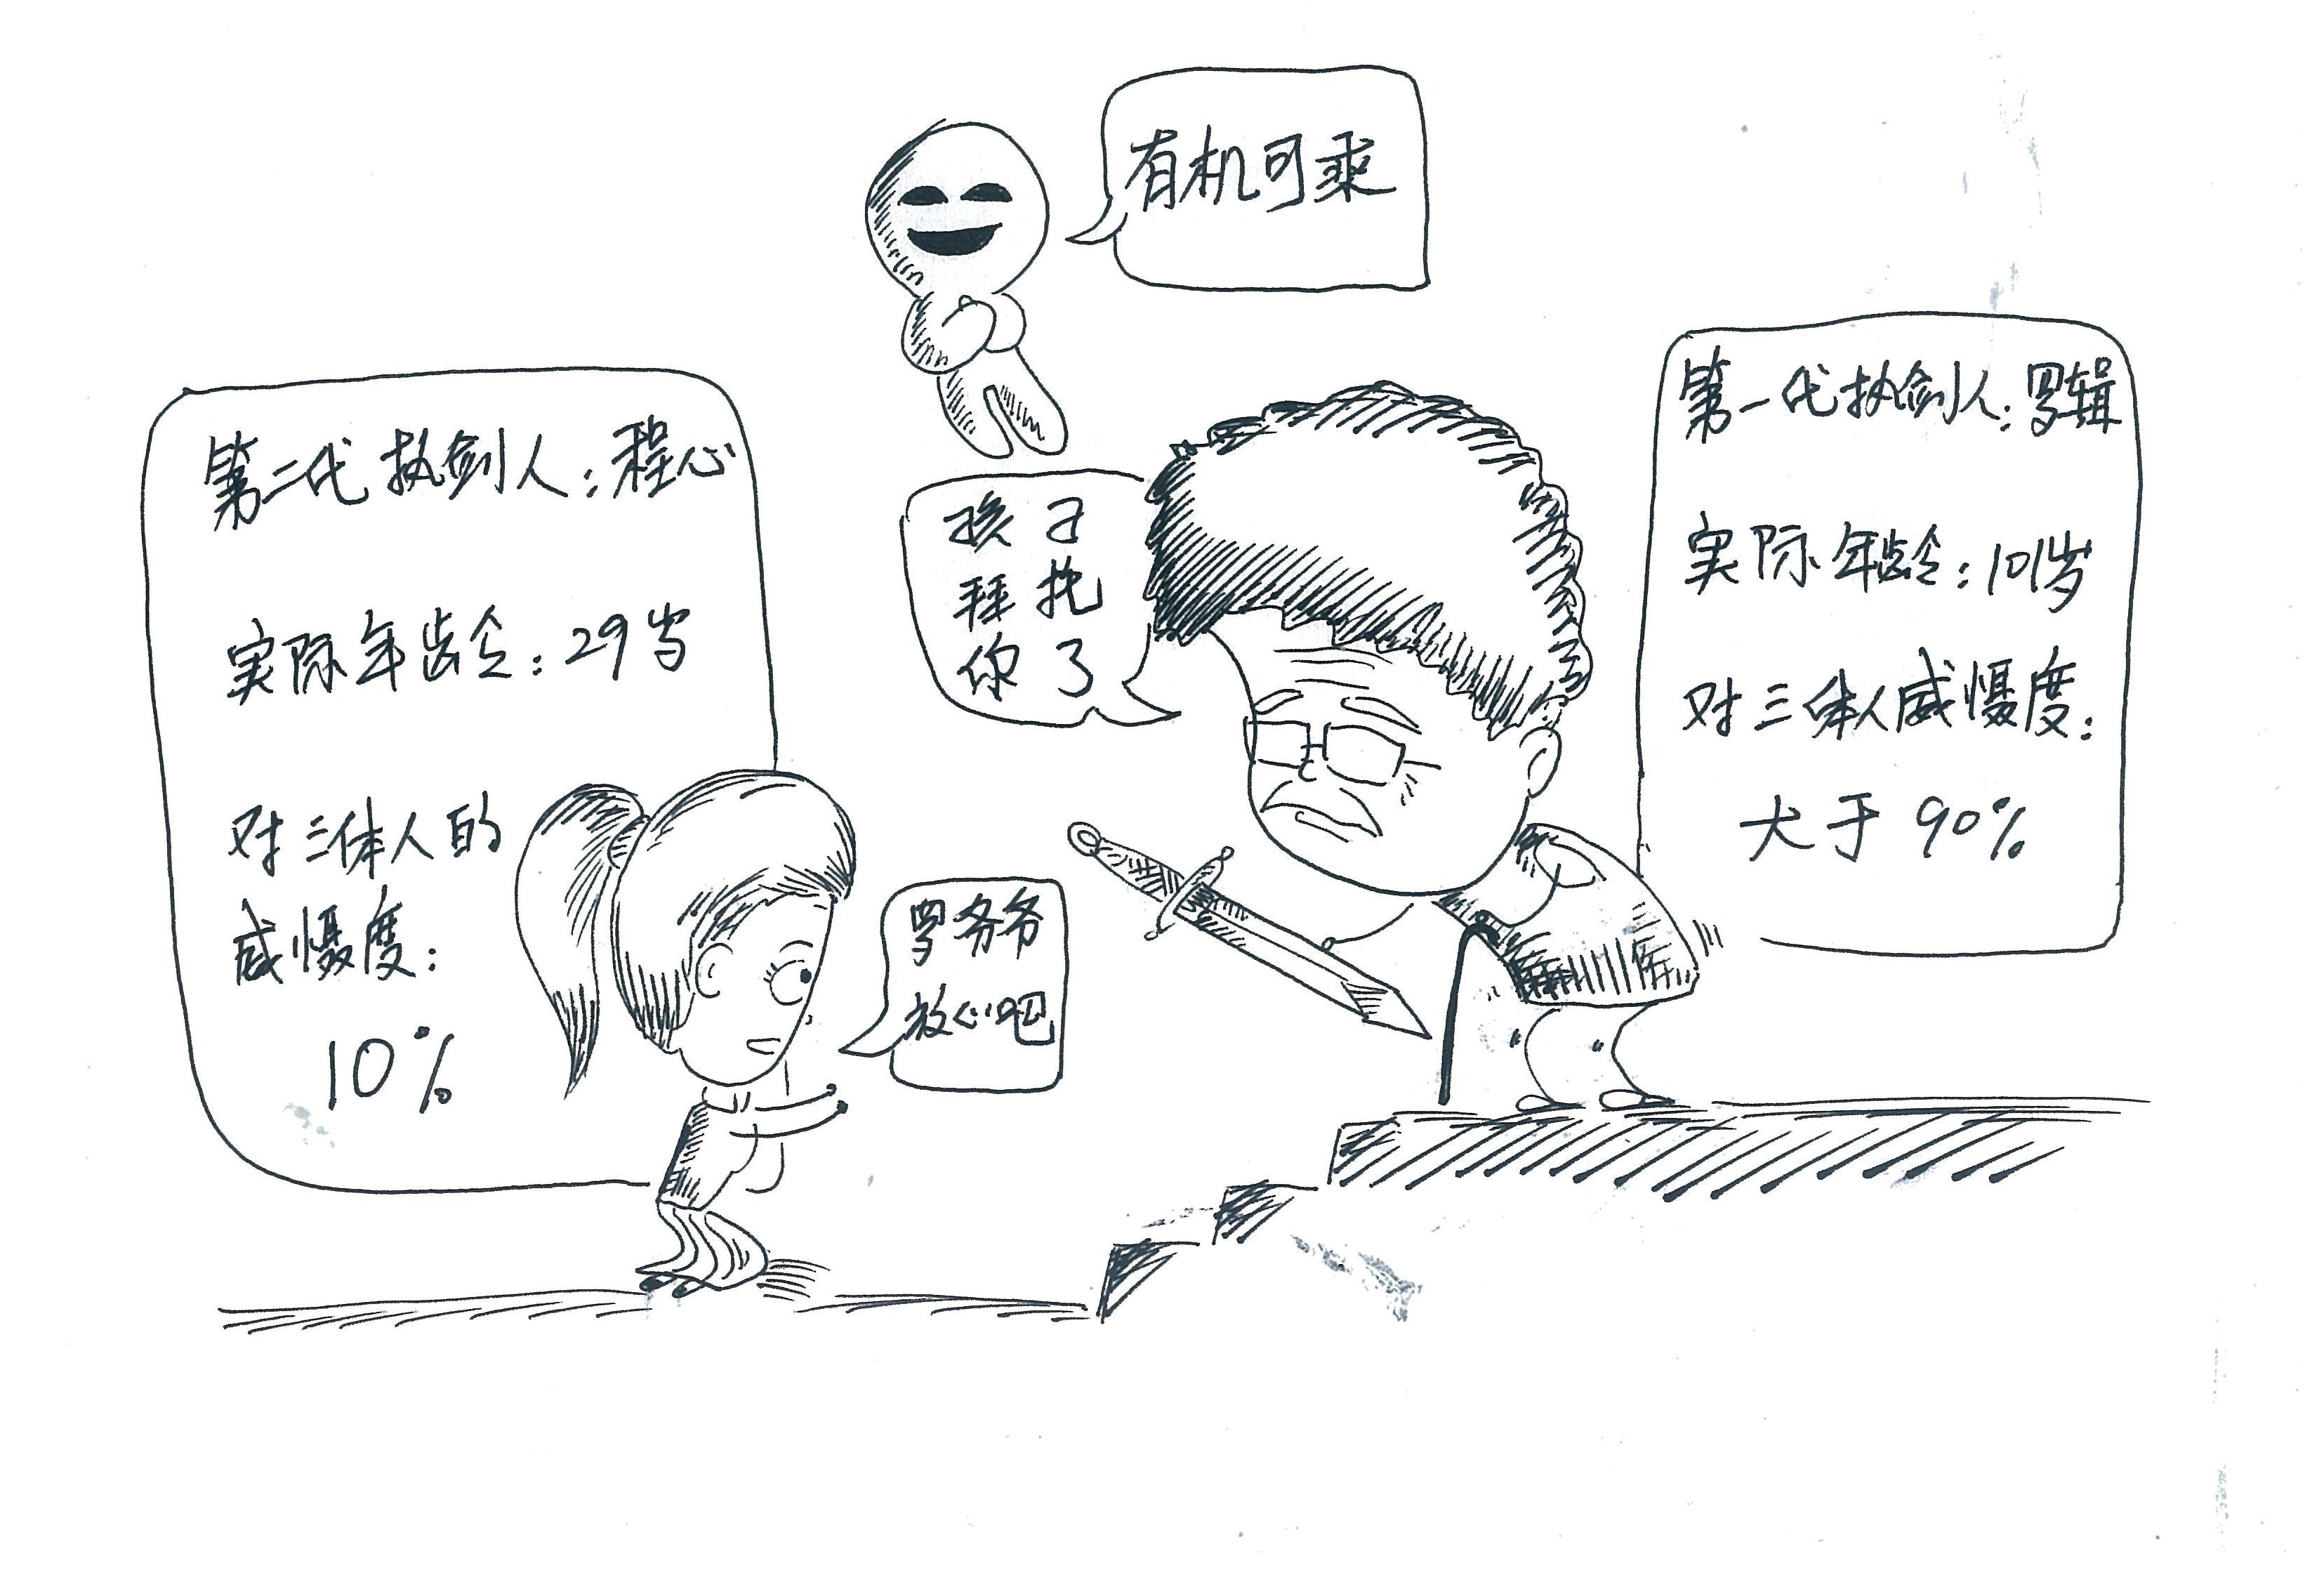 有机可乘
第二代执剑人：程心
实际年龄：29岁
对三体人的
威慑度：
10%
孩子
拜托
你了
罗爷爷
放心吧
第一代执剑人：罗辑
实际年龄：101岁
对三体人威慑度：
大于90%